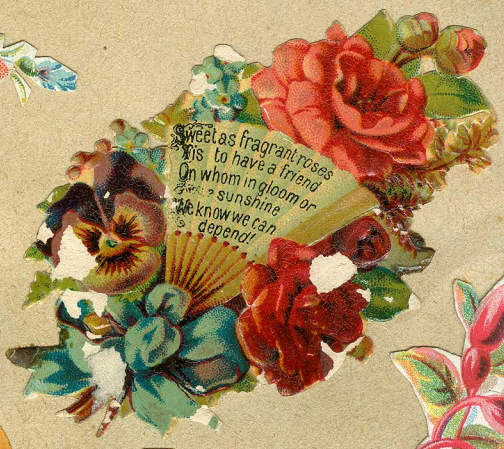 Sweet as fragrant roses
'Tis to have a friend
On whom in gloom or
sunshine
We know we can
depend!